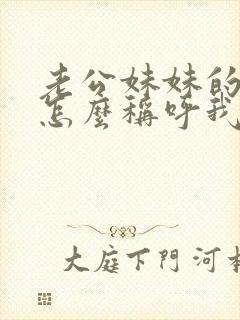 老公妹妹的
怎麼稱呼我
大庭下門河本